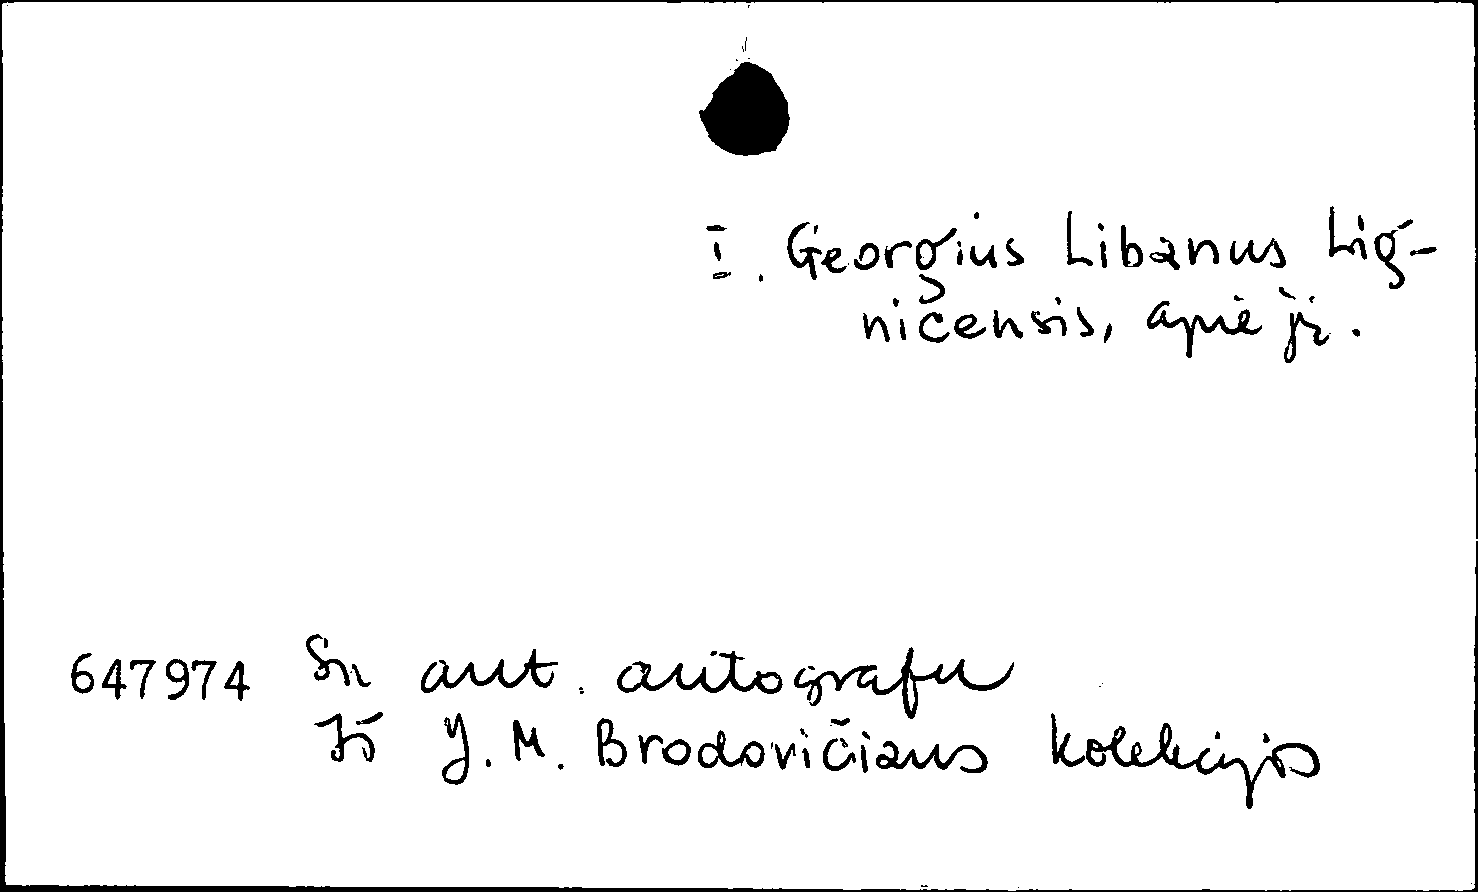 I. Georgius Libanus Lig-
nicensis, apie jį.
647974 Su aut. autografu
Iš J. M. Brodovičiaus kolekcijos